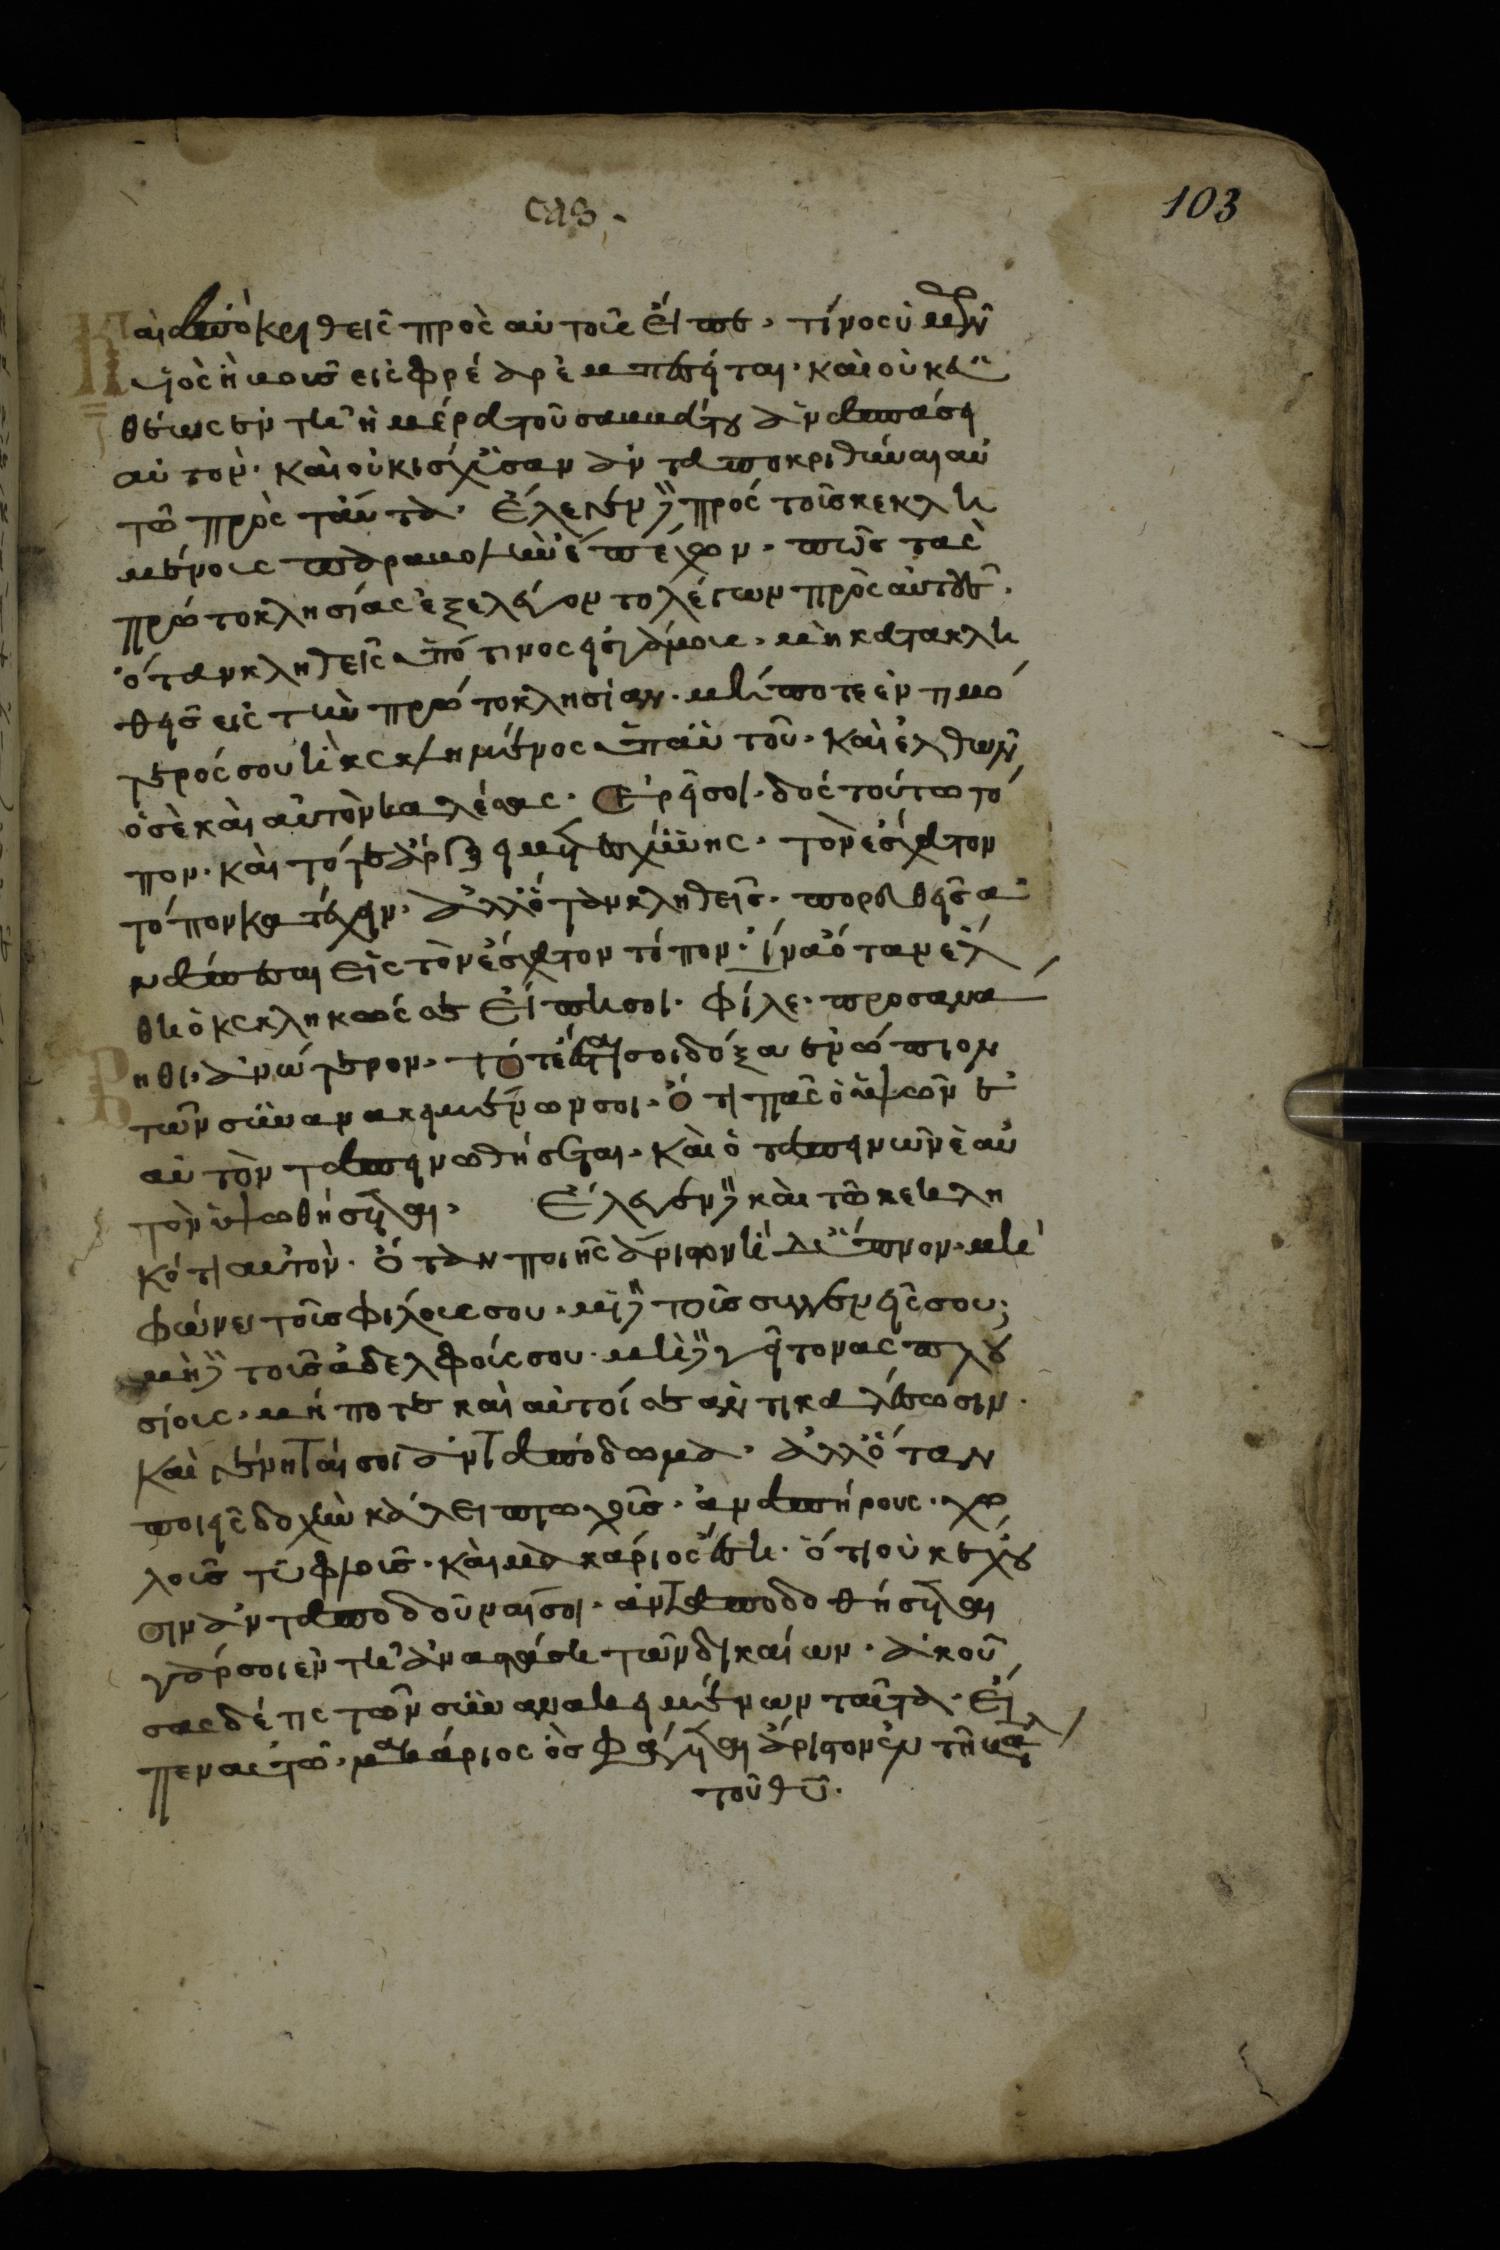 103
Καὶ ἀπὸκριθεὶς πρὸς αὐτοὺς εἶπε· τίνος ὑμῶν
υἱὸς ἢ βοῦς εἰς φρέαρ ἐμπεσῆται· καὶ οὐκ εὐ
θέως ἐν τῇ ἡμέρα τοῦ σαββάτου ἀνασπάση
αὐτὸν· καὶ οὐκ ἰσχϋσαν ἀνταποκριθῆναι αὐ
τῶ πρὸς ταῦτα· Ἔλεγεν δὲ πρός τοὺς κεκλη
μένους παραβολὴν ἐπέχων· πῶς τὰς
πρωτοκλησίας ἐξελέγοντο λέγων πρὸς αὐτούς·
ὅταν κληθεὶς ὑπό τινος εἰς γάμους· μὴ κατακλη
θῆς εἰς τὴν πρωτοκλησίαν· μήποτε ἐντιμό
τερός σου ἦ κεκλημένος ὑπ αὐτοῦ· καὶ ἐλθὼν
ὁ σὲ καὶ αὐτὸν καλέσας· ἐρεῖ σοι· δὸς τούτω τό
πον· καὶ τότε ἄρξη μετ αἰσχύνης· τὸν ἔσχατον
τόπον κατέχειν· ἀλλ ὅταν κληθεὶς· πορευθεὶς ἀ
νάπεσαι εἰς τὸν ἔσχατον τόπον· ἵνα ὅταν ἔλ
θη ὁ κεκληκώς σε εἴπη σοι· φίλε· προσανα
βηθι ἀνώτερον· τότε ἔσται σοι δόξα ἐνώπιον
τῶν συνανακειμένων σοι· ὅτι πᾶς ὁ ὑψῶν ἑ
αὐτὸν ταπεινωθήσεται· καὶ ὁ ταπεινῶν ἑαυ
τὸν ὑψωθήσεται· Ἔλεγεν δὲ καὶ τῶ κεκλη
κότι αὐτὸν· ὅταν ποιῆς ἄριστον ἢ δεῖπνον· μὴ
φώνει τοὺς φίλους σου· μὴ δὲ τοὺς συγγενεῖς σου;
μὴ δὲ τοὺς ἀδελφούς σου· μὴ δὲ γείτονας πλου
σίους· μή ποτε καὶ αὐτοί σε ἀντικαλέσωσιν·
καὶ γένηται σοι ἀνταπόδωμα· ἀλλ ὅταν
ποιῆς δοχὴν κάλει πτωχοὺς· ἀναπήρους· χω
λοὺς τυφλοὺς· καὶ μακάριος ἔση· ὅτι οὐκ ἔχου
σιν ἀνταποδοῦναί σοι· ἀνταποδοθήσεται
γάρ σοι ἐν τῇ ἀναστάσει τῶν δικαίων· ἀκοὺ
σας δέ τις τῶν συνανακειμένων ταῦτα· εἶ
πεν αὐτῶ· μακάριος ὃς φάγεται ἄριστον ἐν τῇ βα
τοῦ θυ·